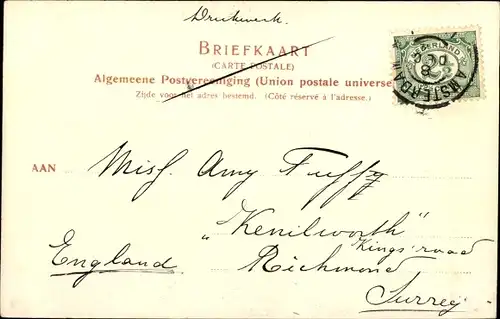 Drukwerk.
BRIEFKAART
(CARTE POSTALE)
Algemeene Postvereeniging (Union postale universe
Zijde voor het adres bestemd. (Côté réservé à l'adresse.)
NEDERLAND
AMSTERDAM
AAN Miss Amy Tuffy
"Kenilworth"
Kings' road
England Richmond
Surrey